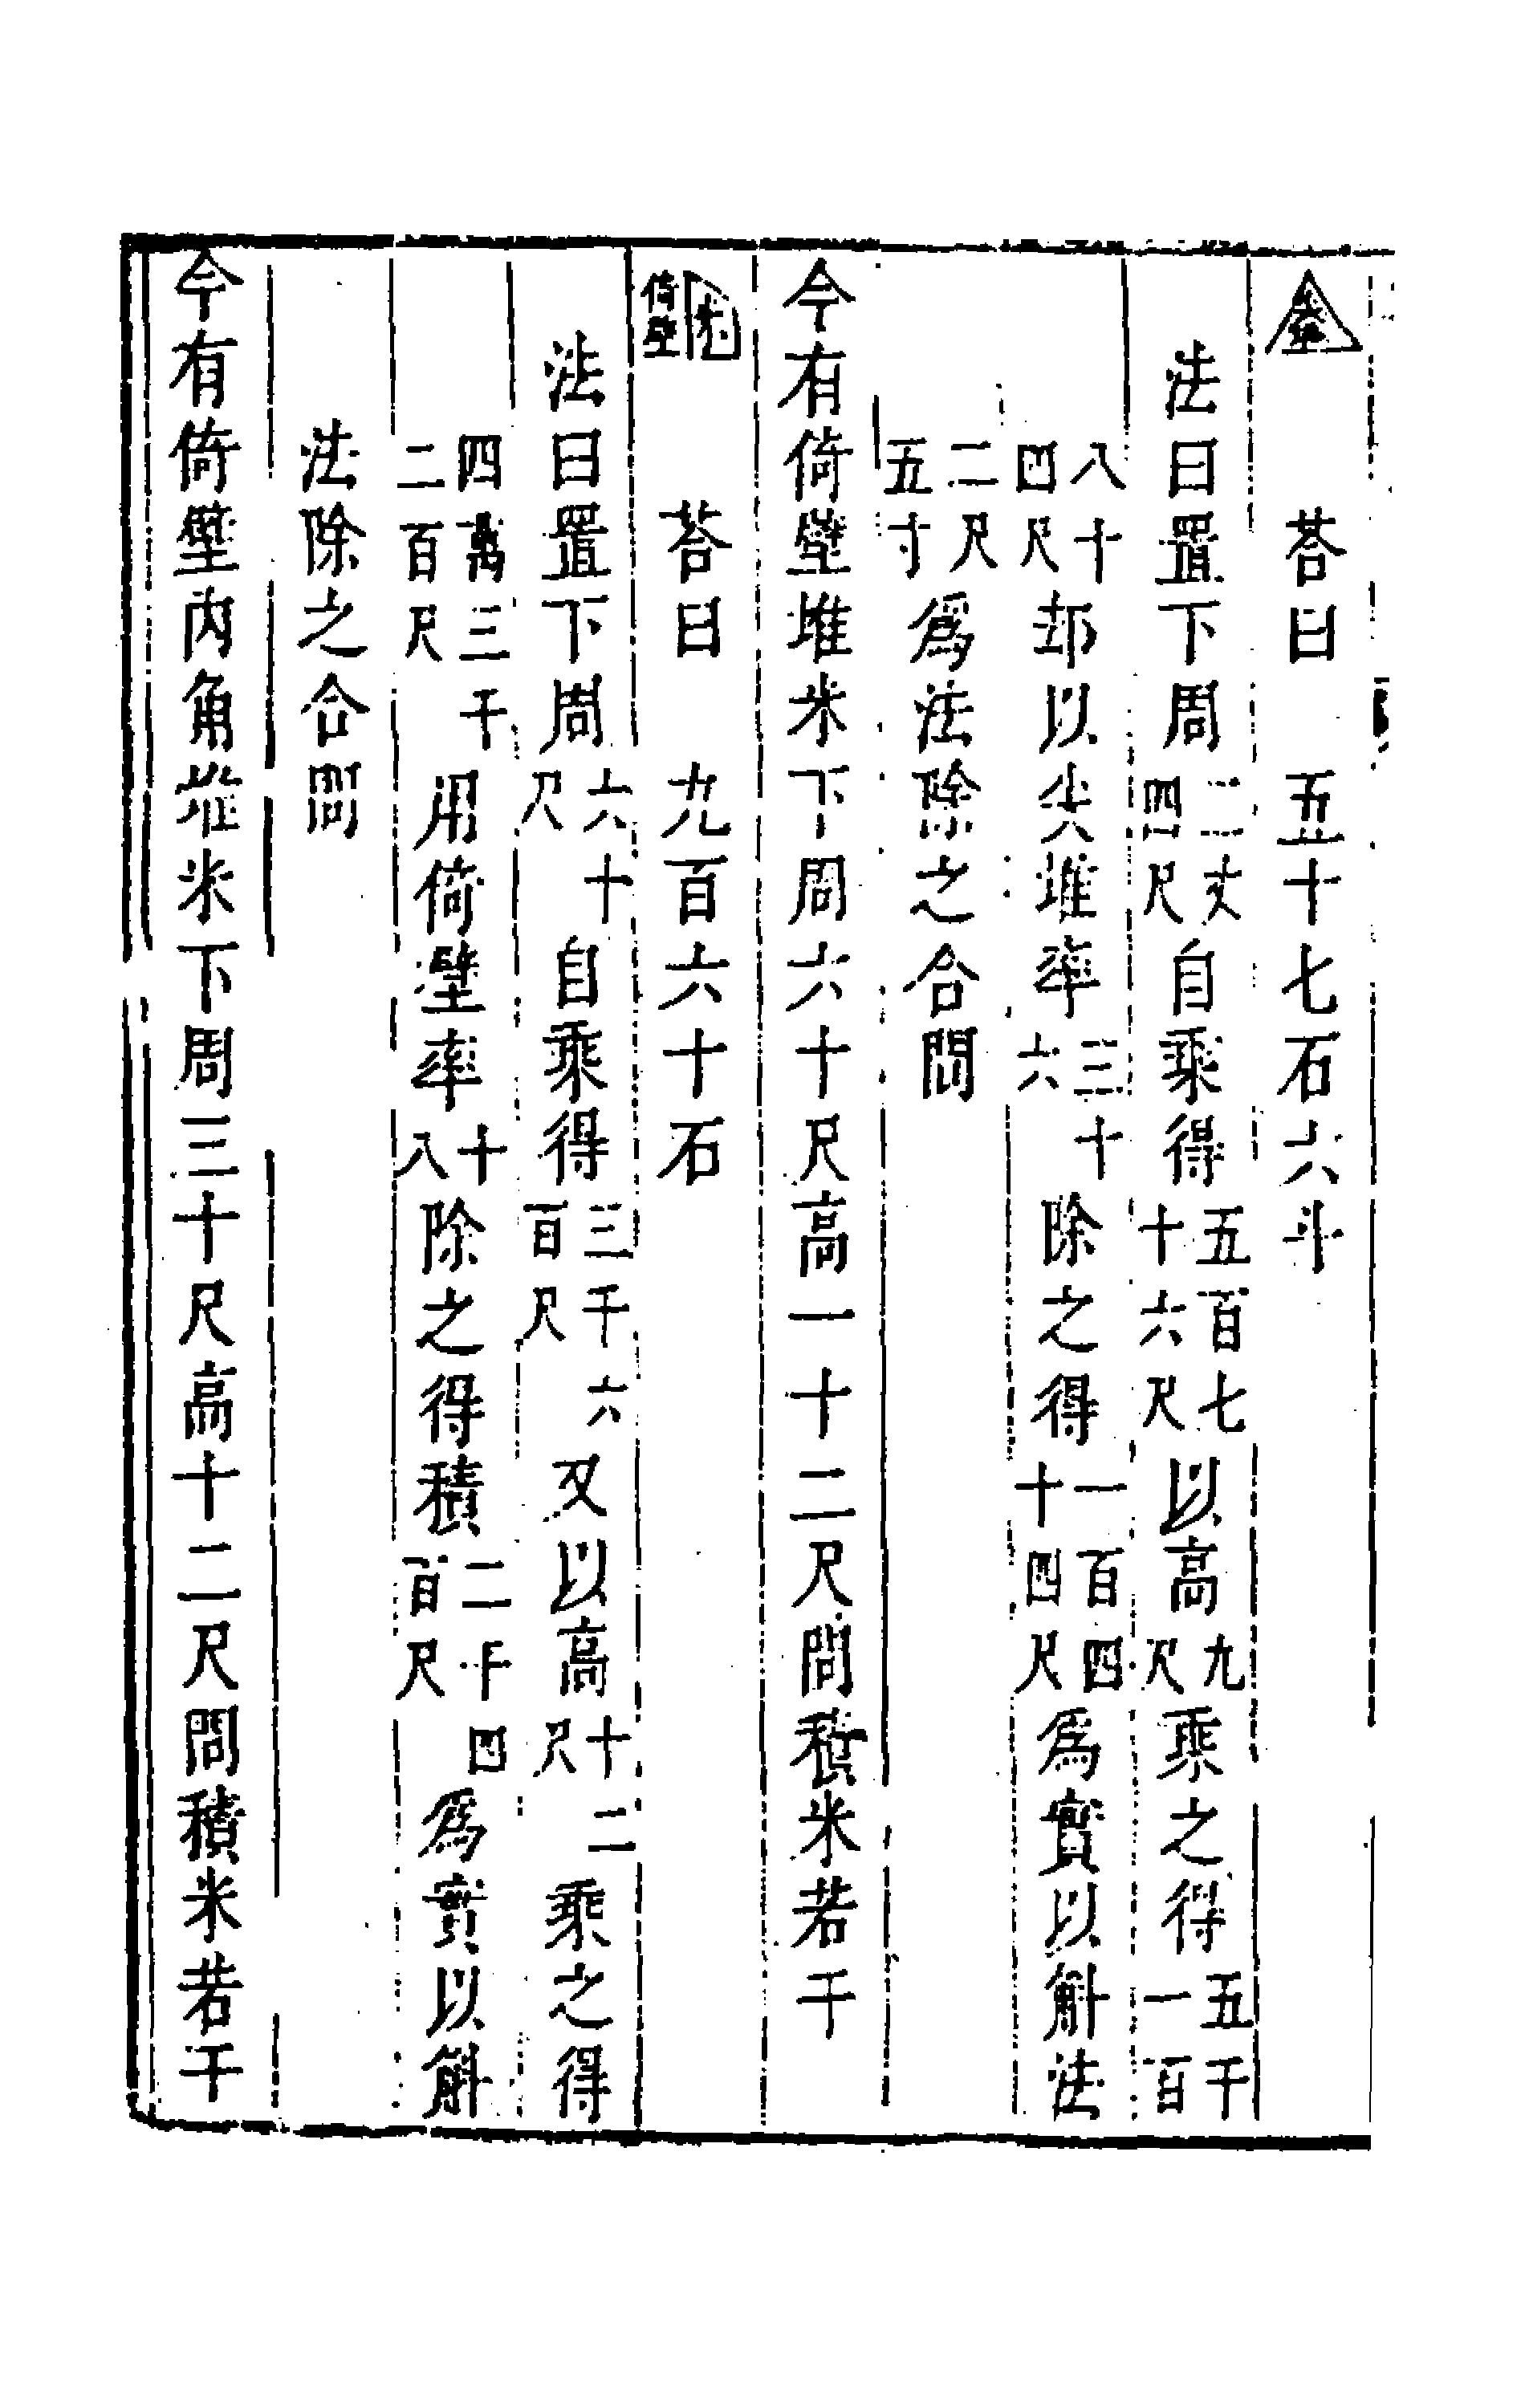 荅曰　五十七石六斗
法曰置下周二丈四尺自乘得五百七十六尺以高九尺乘之得五千一百
八十四尺却以尖堆率三十六除之得一百四十四尺爲實以斛法
二尺五寸爲法除之合問
今有倚壁堆米下周六十尺高一十二尺問積米若干
倚壁　荅曰　九百六十石
法曰置下周六十尺自乘得三千六百尺又以高十二尺乘之得
四萬三千二百尺用倚壁率十八除之得積二千四百尺爲實以斛
法除之合問
今有倚壁内角堆米下周三十尺高十二尺問積米若干